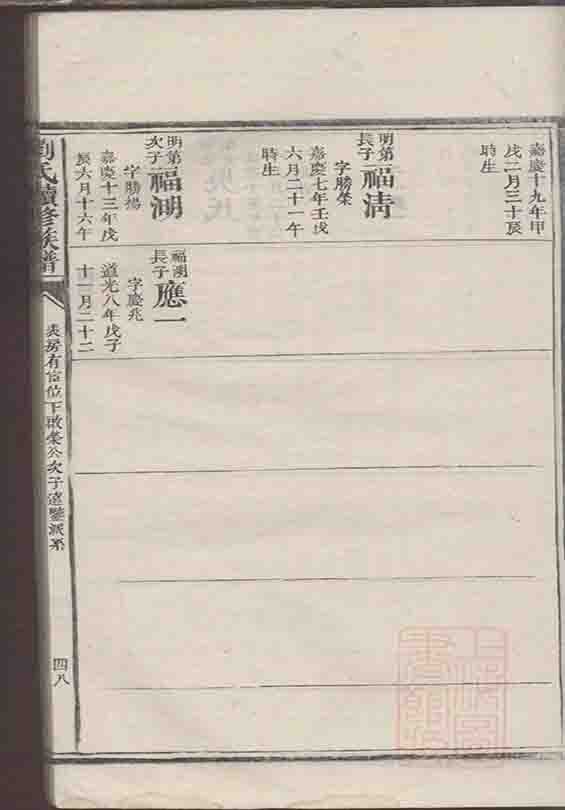 嘉慶十九年甲
戌二月三十辰
時生
明第
長子
福清
字勝榮
嘉慶七年壬戌
六月二十一午
時生
明第
次子
福湖
字勝揚
嘉慶十三年戊
辰六月十六午
福湖
長子
應一
字慶兆
道光八年戊子
十一月二十二
劉氏續修族譜
房有富位下啟榮公次子遠鑒派系
四八